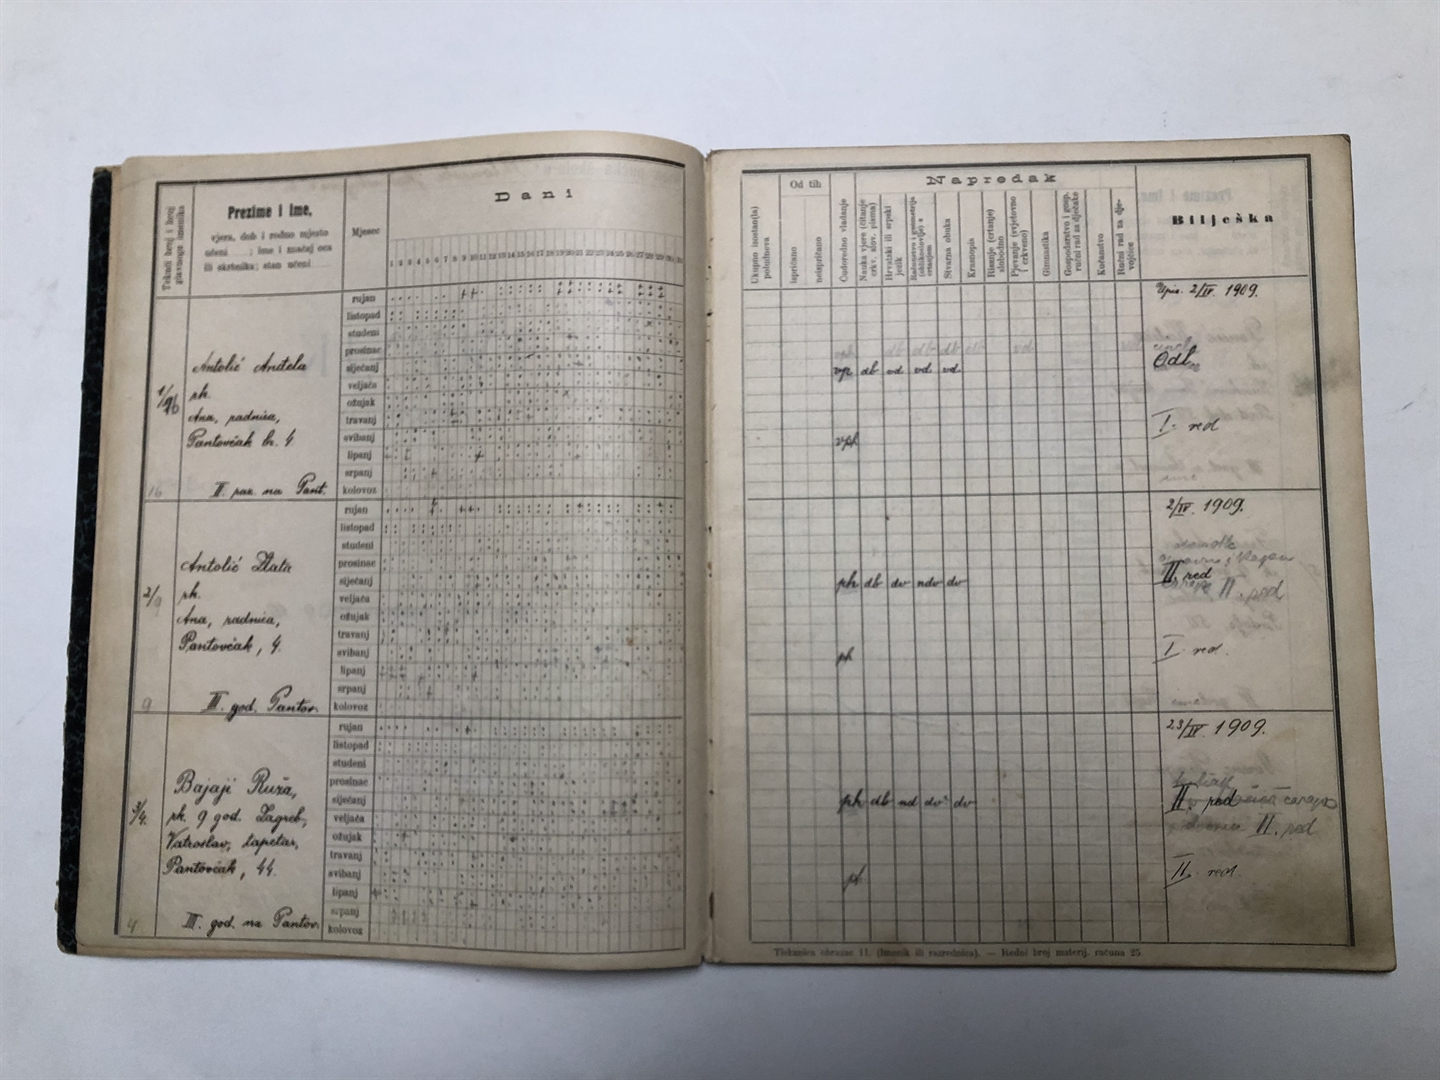 Tekući broj i broj
glavnoga imenika
Prezime i ime,
vjera, dob i rodno mjesto
učeni ; ime i značaj oca
ili skrbnika; stan učeni
Mjesec
Dani
1 2 3 4 5 6 7 8 9 10 11 12 13 14 15 16 17 18 19 20 21 22 23 24 25 26 27 28 29 30 31
rujan
listopad
studeni
prosinac
siječanj
veljača
ožujak
travanj
svibanj
lipanj
srpanj
kolovoz
Antolić Anđela
rk.
Ana, radnica,
Pantovčak br. 4
16
II. raz. na Pant.
rujan
listopad
studeni
prosinac
siječanj
veljača
ožujak
travanj
svibanj
lipanj
srpanj
kolovoz
2/9
Antolić Zlata
rk.
Ana, radnica,
Pantovčak, 4.
9
III. god. Pantov.
rujan
listopad
studeni
prosinac
siječanj
veljača
ožujak
travanj
svibanj
lipanj
srpanj
kolovoz
3/4.
Bajaji Ruža,
rk. 9 god. Zagreb,
Vatroslav, tapetar,
Pantovčak, 44.
4
III. god. na Pantov.
Ukupno izostan(la)
poludneva
Od tih
ispričano
neispričano
Napredak
Ćudoredno vladanje
Nauka vjere (čitanje
crkv. slov. pisma)
Hrvatski ili srpski
jezik
Računstvo i geometrija
(oblikoslovlje) s
crtanjem
Stvarna obuka
Krasnopis
Risanje (crtanje)
slobodno
Pjevanje (svjetovno
i crkveno)
Gimnastika
Gospodarstvo i gosp.
ručni rad za dječake
Kućanstvo
Ručni rad za dje-
vojčice
Bilješka
Upis. 2/IX. 1909.
vp db vd vd vd
Odl.
I. red
vph
2/IX. 1909.
ph db dv ndv dv
II. red
II. red
I. red.
ph
23/IX. 1909.
ph db nd dv dv
II. red
II. red
II. red.
Tiskanica obrazac 11. (Imenik ili razrednica). — Redni broj materij. računa 25